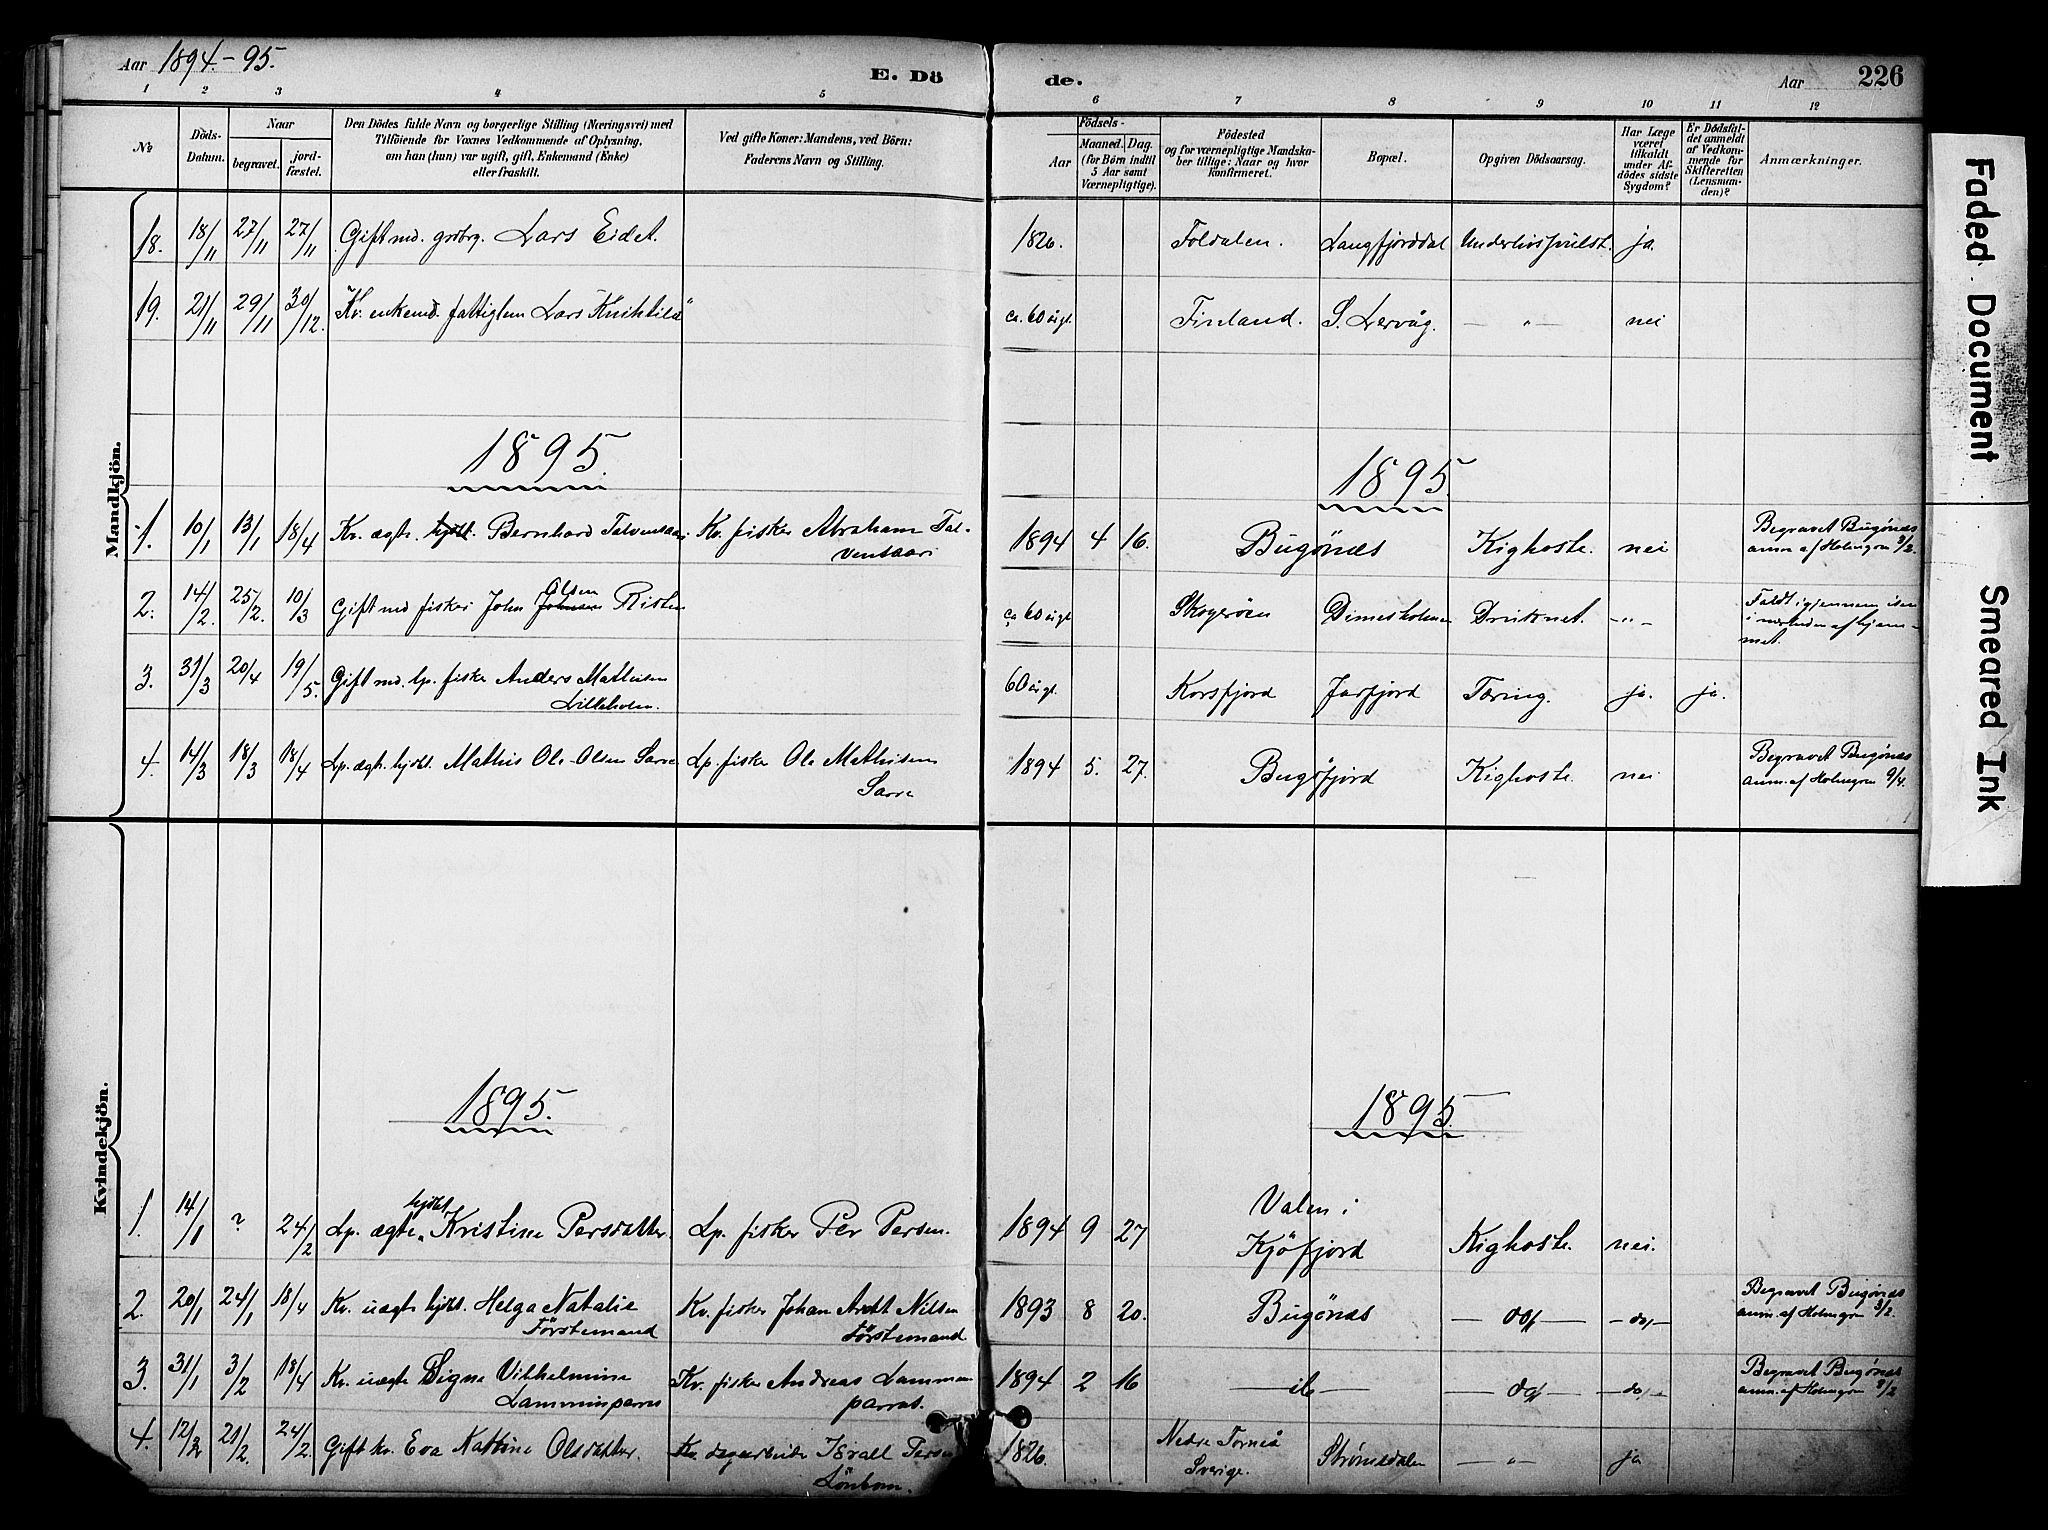 Aar 1894.-95.
E. Dö
de.
Aar
226
1 2 3 4 5 6 7 8 9 10 11 12
No
Döds-Datum.
Naar
begravet.
jord-fæstet.
Den Dödes fulde Navn og borgerlige Stilling (Næringsvei) med
Tilföiende for Voxnes Vedkommende af Oplysning,
om han (hun) var ugift, gift, Enkemand (Enke)
eller fraskilt.
Ved gifte Koner: Mandens, ved Börn:
Faderens Navn og Stilling.
Födsels-
Aar
Maaned. Dag.
(for Börn indtil
5 Aar samt
Værnepligtige).
Födested
og for værnepligtige Mandska-
ber tillige: Naar og hvor
konfirmeret.
Bopæl.
Opgiven Dödsaarsag.
Har Læge
været
tilkaldt
under Af-
dödes sidste
Sygdom?
Er Dödsfal-
det anmeldt
af Vedkom-
mende for
Skifteretten
(Lensman-
den)?
Anmærkninger.
Mandkjön.
18. 18/11 27/11 27/11 Gift md. grdbrg. Lars Eidet. 1826. Foldalen. Langfjorddal Underlivssvulst. ja.
19. 21/11 29/11 30/12. Kv. enkemd. fattiglem Lars Knihtilä ca. 60 årgl. Finland. S. Lervåg. — " — nei
1895.
1895.
1. 10/1 13/1 18/4 Kv. ægte. Bernhard Talvensaari Kv. fisker Abraham Tal-
vensaari 1894 4 16. Bugönæs Kighoste. nei Begravet Bugönæs
anm. af Holmgren 3/2.
2. 14/2. 25/2. 10/3 Gift md fisker John Johnsen Olsen Risten ca 60 årgl Skogerøen Dimesholmen Druknet. -"- Faldt igjennem isen
i nærheden af hjem-
met.
3. 31/3 20/4 19/5. Gift md. lp. fisker Anders Mathisen
Lilleholm. 60 årgl. Korsfjord Jarfjord Tæring. ja. ja.
4. 14/3 18/3 18/4 Lp. ægte. hjdbt. Mathis Ole Olsen Sarre Lp. fisker Ole Mathisen
Sarre 1894 5. 27. Bugöfjord Kighoste. nei Begravet Bugönæs
anm. af Holmgren 9/4.
Kvindekjön.
1895.
1895.
1. 14/1 ? 24/2 Lp. ægte hjdbt Kristine Persdatter. Lp. fisker Per Persen. 1894 9 27 Valen i
Kjöfjord Kighoste. nei.
2. 20/1 24/1 18/4 Kv. uægte hjdbt. Helga Natalie
Förstemand Kv. fisker Johan Arndt Nilsen
Förstemand 1893 8 20. Bugönæs — do — — do — Begravet Bugönæs
anm. af Holmgren 3/2.
3. 31/1 3/2 18/4 Kv. uægte Signe Vilhelmine
Lamminparras Kv. fisker Andreas Lammin
parras. 1894 2 16 — ib — — do — — do — Begravet Bugönæs
anm. af Holmgren 3/2
4. 12/2 21/2. 24/2. Gift kv. Eva Kathine Olsdatter. Kv. dagarbeider Israel Persen
Lönbom. 1826. Nedre Torneå
Sverige. Strømsdalen — " — ja
Faded Document
Smeared Ink